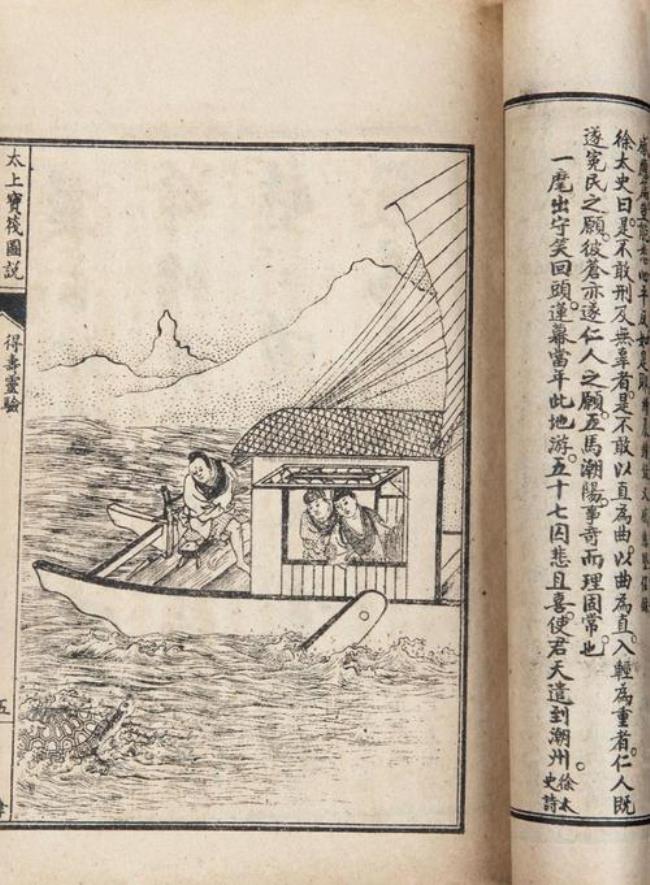 徐太史曰。是不敢刑及無辜者。是不敢以直為曲。以曲為直。入輕為重者。仁人既
遂冤民之願。彼蒼亦遂仁人之願。五馬潮陽。事奇而理固常也
一麾出守笑回頭。蓮幕當年此地游。五十七囚悲且喜。使君天遣到潮州。
徐太
史詩
太上寶筏圖說
得壽靈驗
五